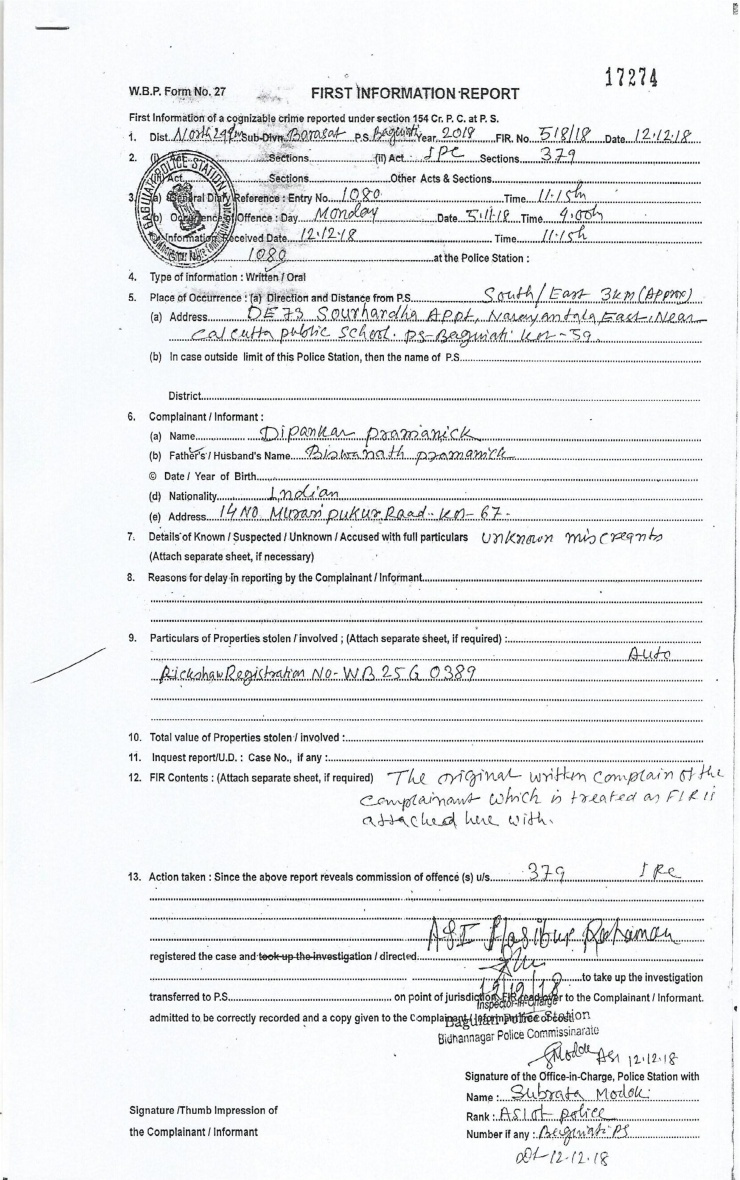 17274
W.B.P. Form No. 27 FIRST INFORMATION REPORT
First Information of a cognizable crime reported under section 154 Cr. P. C. at P. S.
1. Dist. North 24 Sub-Divn. Barasat P.S. Baguiati Year 2018 FIR. No. 518/18 Date 12.12.18
2. (i) Act Sections (ii) Act IPC Sections 379
(iii) Act Sections Other Acts & Sections
3. (a) General Diary Reference : Entry No. 1080 Time 11.15h
(b) Occurrence of Offence : Day Monday Date 5.11.18 Time 9.00h
Information Received Date 12.12.18 Time 11.15h
1080 at the Police Station :
4. Type of Information : Written / Oral
5. Place of Occurrence : (a) Direction and Distance from P.S. South/East 3km (Approx)
(a) Address DE 73 Sourhardha Appt, Narayantala East. Near
Calcutta public School. PS-Baguiati Kol-59.
(b) In case outside limit of this Police Station, then the name of P.S.
District
6. Complainant / Informant :
(a) Name Dipankar Pramanick
(b) Father's / Husband's Name Biswanath pramanick
© Date / Year of Birth
(d) Nationality Indian
(e) Address 14 NO Murari pukur Road. Kol-67.
7. Details of Known / Suspected / Unknown / Accused with full particulars Unknown miscreants
(Attach separate sheet, if necessary)
8. Reasons for delay in reporting by the Complainant / Informant
9. Particulars of Properties stolen / involved ; (Attach separate sheet, if required) :
Auto
Rickshaw Registration No- WB 25 G 0389
10. Total value of Properties stolen / involved :
11. Inquest report/U.D. : Case No., if any :
12. FIR Contents : (Attach separate sheet, if required) The original written complain of the
complainant which is treated as FIR is
attached here with.
13. Action taken : Since the above report reveals commission of offence (s) u/s. 379 IPC
ASI Hasibur Rahaman
registered the case and took up the investigation / directed
to take up the investigation
transferred to P.S. on point of jurisdiction FIR read over to the Complainant / Informant.
Inspector-in-Charge
admitted to be correctly recorded and a copy given to the Complainant / Informant free of cost
Baguiati Police Station
Bidhannagar Police Commissinarate
SModok ASI 12.12.18
Signature of the Office-in-Charge, Police Station with
Name : Subrata Modok
Signature /Thumb Impression of Rank : ASI of police
the Complainant / Informant Number if any : Baguiati PS
Dt-12.12.18
BAGUIATI POLICE STATION